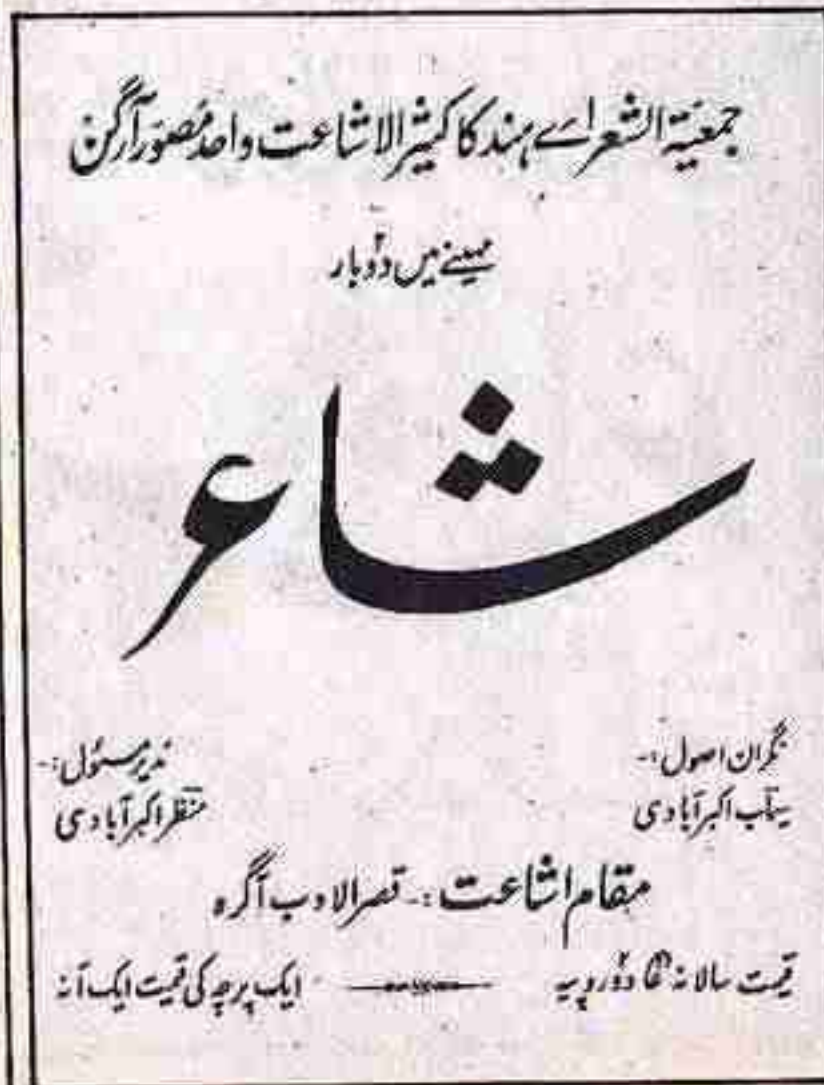 جمعیۃ الشعراے ہند کا کثیر الاشاعت واحد مصور آرگن
مہینے میں دوبار
شاعر
نگران اصول:-
سیماب اکبرآبادی
مدیر مسئول:-
منظر اکبرآبادی
مقام اشاعت :- قصر الادب آگرہ
قیمت سالانہ دو روپیہ
ایک پرچہ کی قیمت ایک آنہ